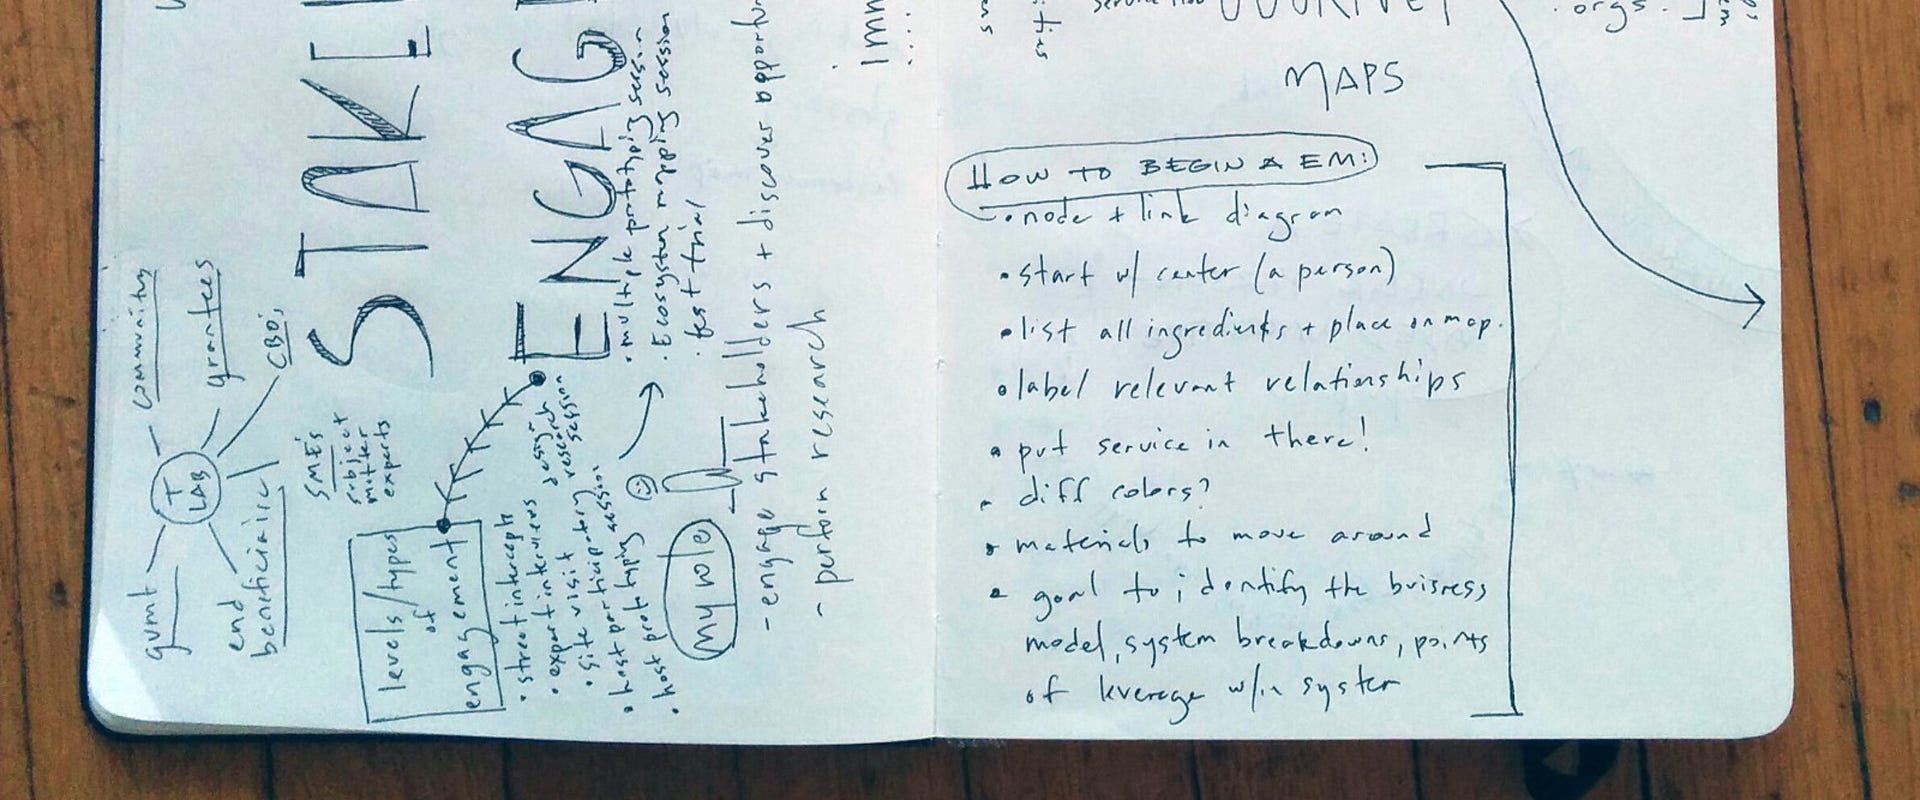 community
grantees
CBO's
T
LAB
gvmt
end
beneficiaries
SME's
subject
matter
experts
STAKE
ENGAG
levels/types
of
engagement
• street intercepts
• expert interviews
• site visit
• host participatory
design
research
session
session
• host prototyping
• multiple prototyping session
• Ecosystem mapping session
• test trial
my role
- engage stakeholders + discover opportun
- perform research
imm
ens
MAPS
orgs.
em
HOW TO BEGIN A EM:
• node + link diagram
• start w/ center (a person)
• list all ingredients + place on map.
• label relevant relationships
• put service in there!
• diff colors?
• materials to move around
• goal to identify the business
model, system breakdowns, points
of leverage w/in system